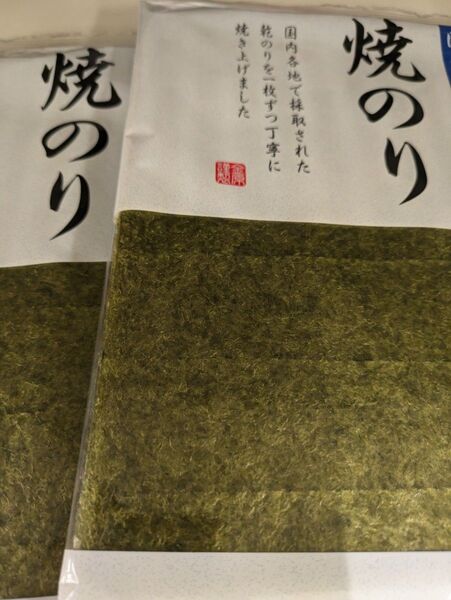 焼のり
国内各地で採取された
乾のりを一枚ずつ丁寧に
焼き上げました
焼のり